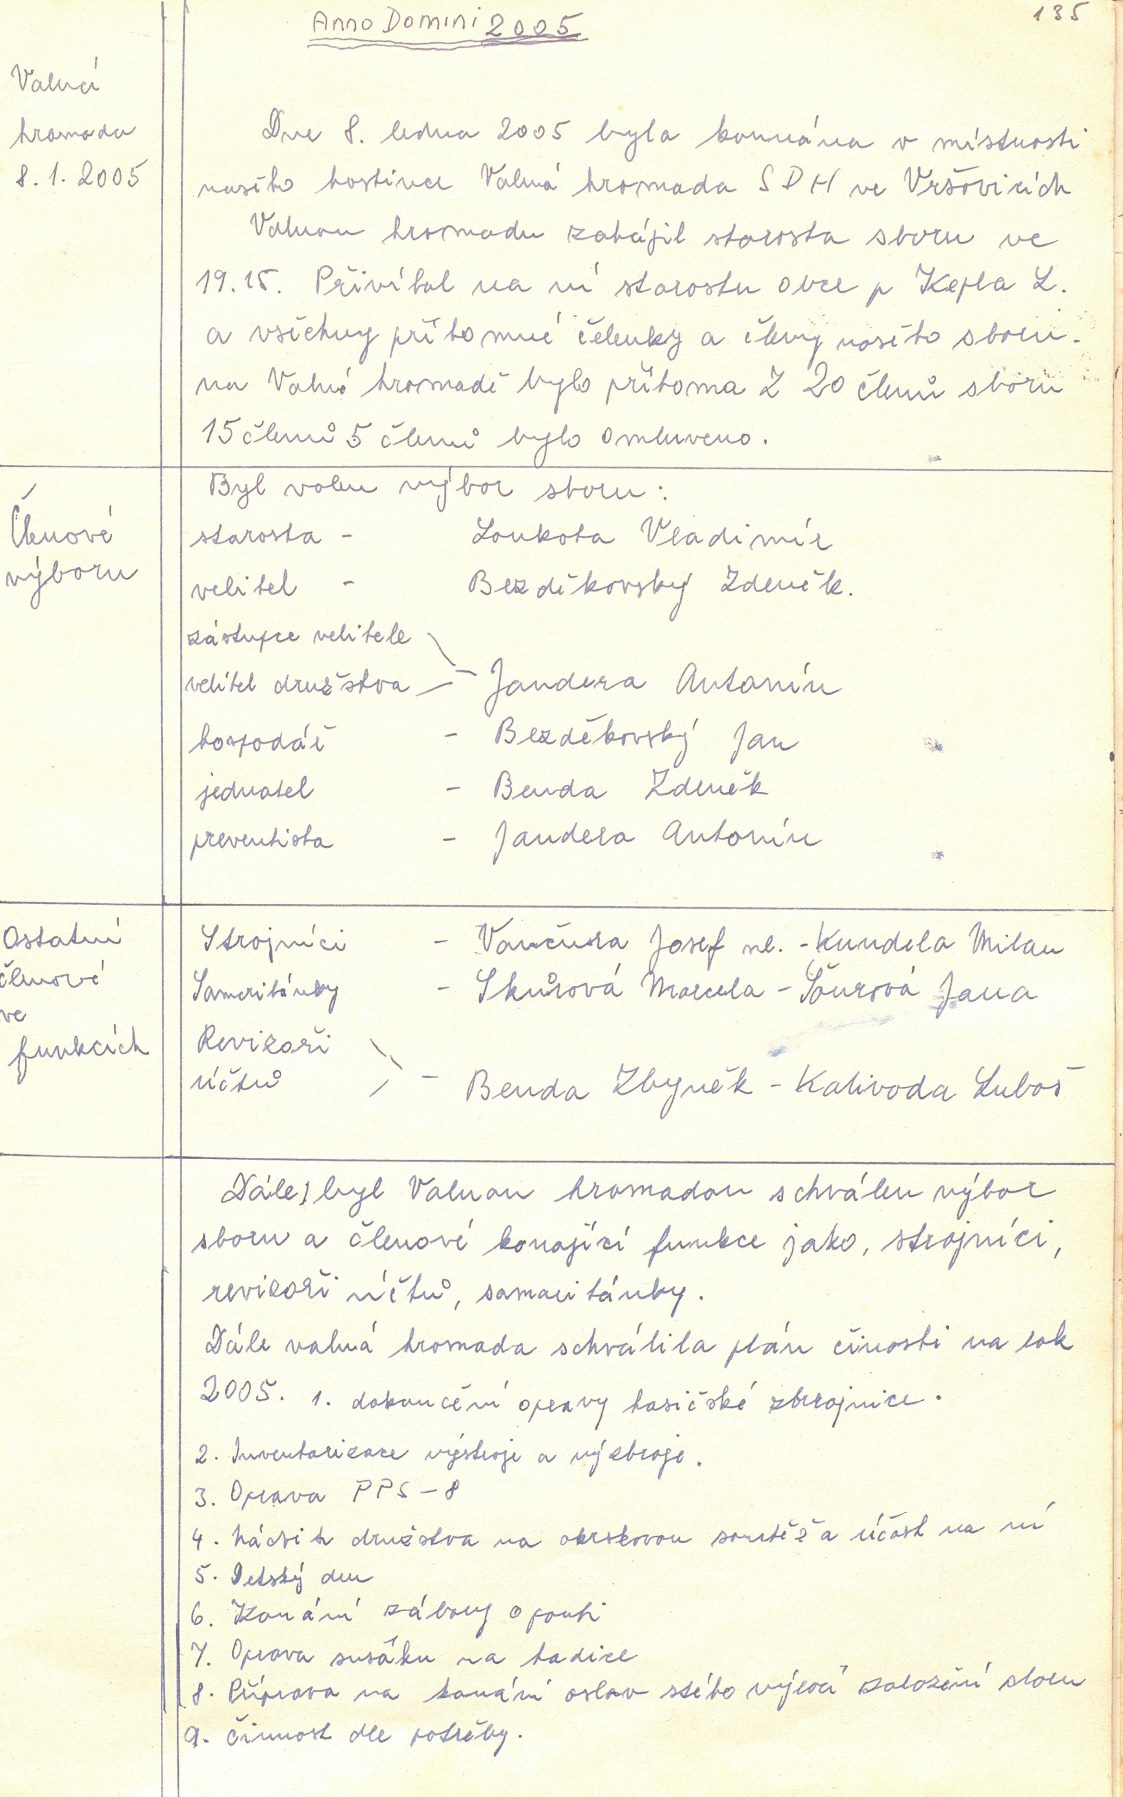 Anno Domini 2005
135
Valná
hromada
8. 1. 2005
Dne 8. ledna 2005 byla konnána v místnosti
naseho hostince Valná hromada SDH ve Vršovicích
Valnou hromadu zahájil starosta sboru ve
19.15. Přivítal na ní starostu obce p Kepla L.
a všechny přítomné členky a členy naseho sboru.
na Valné hromadě bylo přítoma Z 20 členů sboru
15 členů 5 členů bylo omluveno.
Členové
výboru
Byl volen výbor sboru:
starosta - Loukota Vladimír
velitel - Bezděkovský Zdeněk.
zástupce velitele
velitel družstva - Jandera Antonín
hospodář - Bezděkovský Jan
jednatel - Benda Zdeněk
preventista - Jandera Antonín
Ostatní
členové
ve
funkcích
Strojníci - Vančura Josef ml. - Kundela Milan
Sameritánky - Skůrová Marcela - Šourová Jana
Revizoři
účtů - Benda Zbyněk - Kalivoda Luboš
Dále) byl Valnou hromadou schválen výbor
sboru a členové konající funkce jako, strojníci,
revizoři účtů, samaritánky.
Dále valná hromada schválila plán činosti na rok
2005. 1. dokončění opravy hasičské zbrojnice.
2. Inventarizace výstroje a výzbroje.
3. Oprava PPS-8
4. Nácvik družstva na okrskovou soutěž a účast na ní
5. Detský den
6. Konání zábavy o pouti
7. Oprava sušáku na hadice
8. Příprava na konání oslav stého výročí založení sboru
9. činnost dle potřeby.